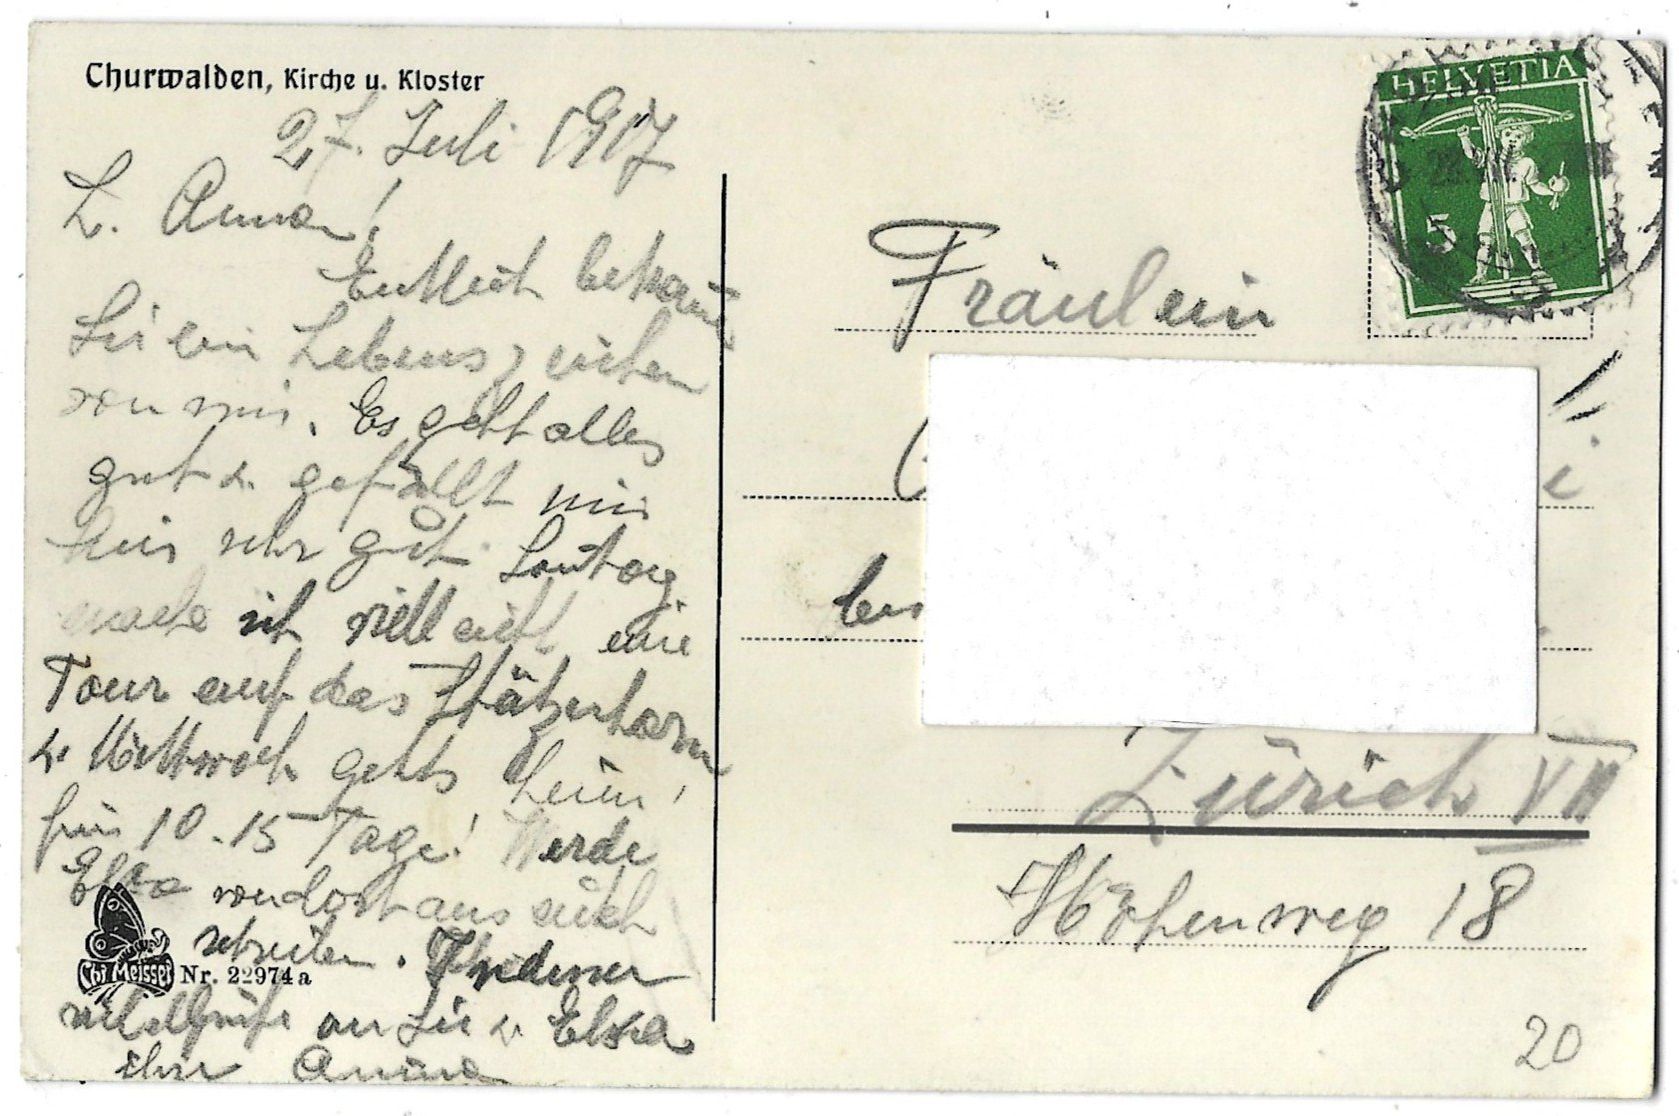 Churwalden, Kirche u. Kloster
27. Juli 1917
L. Anna!
Endlich bekommen
Sie ein Lebenszeichen
von mir. Es geht alles
gut u. gefällt mir
hier sehr gut. Sonntag
mache ich vielleicht eine
Tour auf das Stätzerhorn
u. Mittwoch gehts heim
für 10-15 Tage! Werde
Elsa von dort aus auch
schreiben. Indessen
viele Grüße an Sie u. Elsa
ihre Anna
Chr Meisser
Nr. 22974a
HELVETIA
5
Fräulein
bei
Zürich VII
Höhenweg 18
20